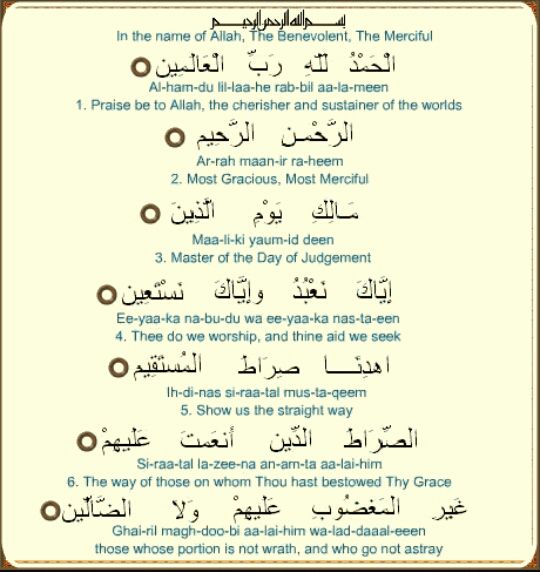 بسم الله الرحمن الرحيم
In the name of Allah, The Benevolent, The Merciful
الْحَمْدُ لِلّهِ رَبِّ الْعَالَمِين
Al-ham-du lil-laa-he rab-bil aa-la-meen
1. Praise be to Allah, the cherisher and sustainer of the worlds
الرَّحْمـنِ الرَّحِيم
Ar-rah maan-ir ra-heem
2. Most Gracious, Most Merciful
مَـالِكِ يَوْمِ الَّذِينَ
Maa-li-ki yaum-id deen
3. Master of the Day of Judgement
إِيَّاكَ نَعْبُدُ وإِيَّاكَ نَسْتَعِين
Ee-yaa-ka na-bu-du wa ee-yaa-ka nas-ta-een
4. Thee do we worship, and thine aid we seek
اهدِنَــــا صِرَاطَ المُستَقِيم
Ih-di-nas si-raa-tal mus-ta-qeem
5. Show us the straight way
الصِّرَاطَ الذِّين أنعَمتَ عَلَيهِمْ
Si-raa-tal la-zee-na an-am-ta aa-lai-him
6. The way of those on whom Thou hast bestowed Thy Grace
غَيرِ المَغضُوبِ عَلَيهِمْ وَلا الضَّالِّين
Ghai-ril magh-doo-bi aa-lai-him wa-lad-daaal-eeen
those whose portion is not wrath, and who go not astray